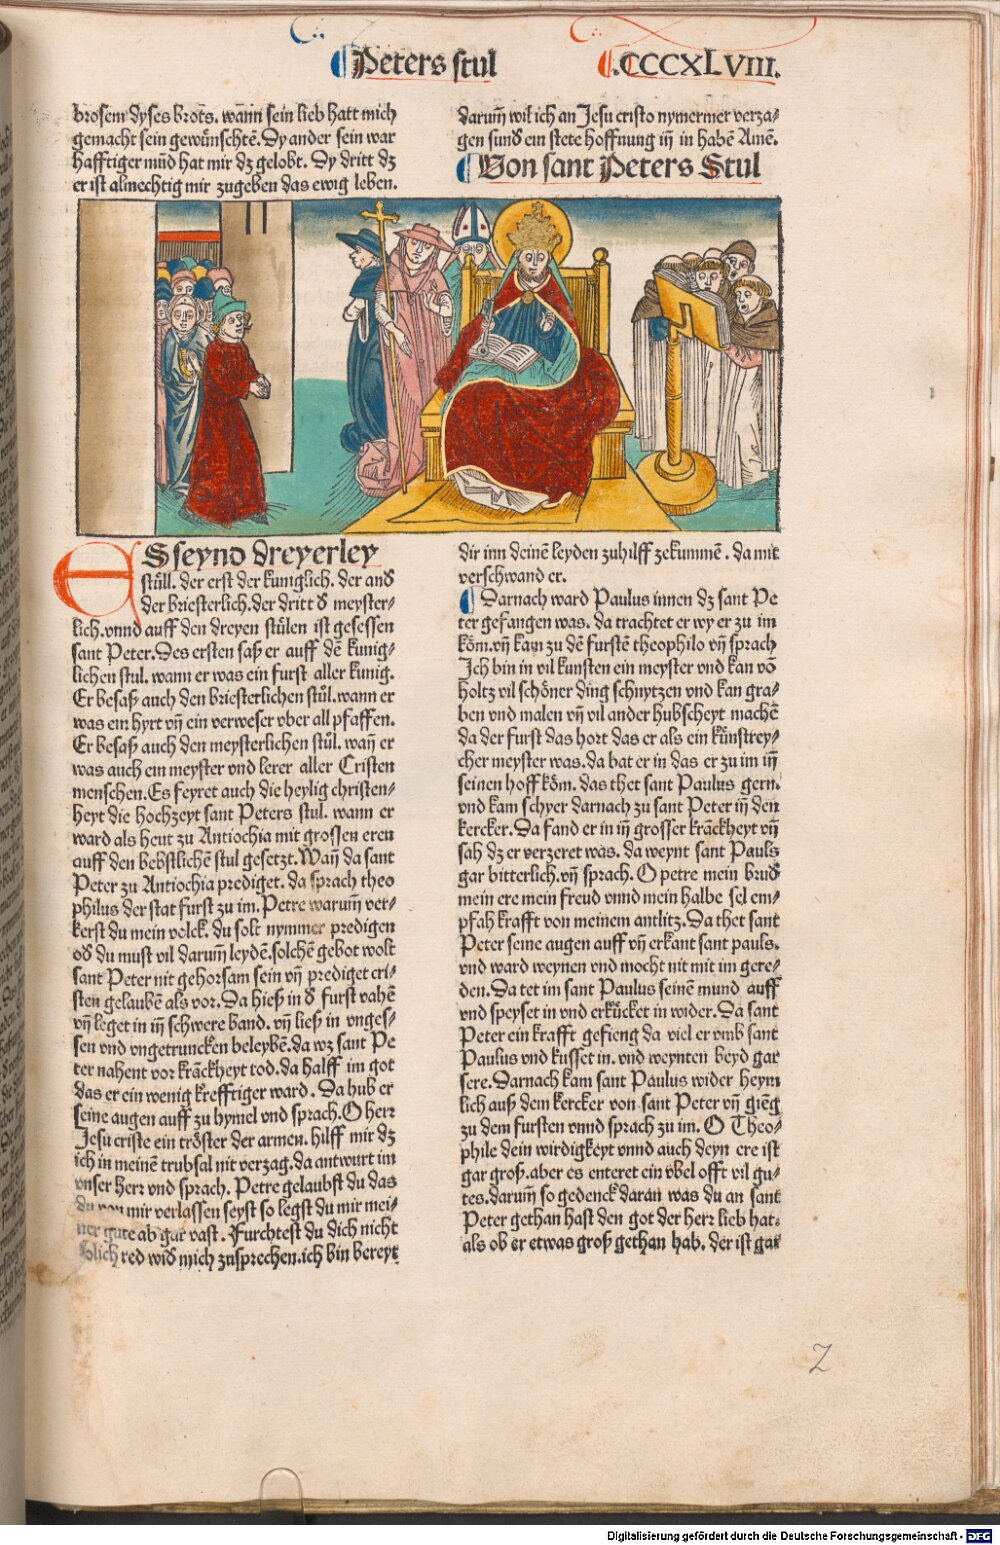 Peters stul
.CCCXLVIII.
brosem dyses brots. wann sein lieb hatt mich
gemacht sein gewünschtē. Dy ander sein war
hafftiger mūd hat mir dz gelobt. Dy dritt dz
er ist almechtig mir zugeben das ewig leben.
darum̄ wil ich an Jesu cristo nymermer verza⸗
gen sund ein stete hoffnung in̄ in habē Amē.
Von sant Peters Stul
ES seynd dreyerley
stůll. der erst der kuniglich. der and
der briesterlich. der dritt d meyster⸗
lich. vnnd auff den dreyen stůlen ist gesessen
sant Peter. Des ersten saß er auff dē kunig⸗
lichen stul. wann er was ein furst aller kunig.
Er besaß auch den briesterlichen stůl. wann er
was ein hyrt vn̄ ein verweser vber all pfaffen.
Er besaß auch den meysterlichen stůl. wan̄ er
was auch ein meyster vnd lerer aller Cristen
menschen. Es feyret auch die heylig christen⸗
heyt die hochzeyt sant Peters stul. wann er
ward als heut zu Antiochia mit grossen eren
auff den bebstlichē stul gesetzt. Wan̄ da sant
Peter zu Antiochia prediget. da sprach theo
philus der stat furst zu im. Petre warum̄ ver⸗
kerst du mein volck. du solt nymmer predigen
od du must vil darum̄ leydē. solchē gebot wolt
sant Peter nit gehorsam sein vn̄ prediget cri⸗
sten gelaubē als vor. Da hieß in d furst vahē
vn̄ leget in in̄ schwere band. vn̄ ließ in vnges⸗
sen vnd vngetruncken beleybē. da wz sant Pe
ter nahent vor krāckheyt tod. da halff im got
das er ein wenig krefftiger ward. Da hub er
seine augen auff zu hymel vnd sprach. O herr
Jesu criste ein tröster der armen. hilff mir dz
ich in meinē trubsal nit verzag. da antwurt im
vnser herr vnd sprach. Petre gelaubst du das
du von mir verlassen seyst so legst du mir mei⸗
ner gute ab gar vast. Furchtest du dich nicht
solich red wid mich zusprechen. ich bin bereyt
dir inn deinē leyden zuhilff zekummē. da mit
verschwand er.
Darnach ward Paulus innen dz sant Pe
ter gefangen was. da trachtet er wy er zu im
kōm. vn̄ kam zu dē furstē theophilo vn̄ sprach
Ich bin in vil kunsten ein meyster vnd kan vō
holtz vil schöner ding schnytzen vnd kan gra⸗
ben vnd malen vn̄ vil ander hubscheyt machē
da der furst das hort das er als ein kůnstrey⸗
cher meyster was. da bat er in das er zu im in̄
seinen hoff kōm. das thet sant Paulus gern.
vnd kam schyer darnach zu sant Peter in̄ den
kercker. Da fand er in in̄ grosser krāckheyt vn̄
sah dz er verzeret was. da weynt sant Pauls
gar bitterlich. vn̄ sprach. O petre mein brud
mein ere mein freud vnnd mein halbe sel em⸗
pfah krafft von meinem antlitz. Da thet sant
Peter seine augen auff vn̄ erkant sant pauls.
vnd ward weynen vnd mocht nit mit im gere⸗
den. Da tet im sant Paulus seinē mund auff
vnd speyset in vnd erkůcket in wider. Da sant
Peter ein krafft gefieng da viel er vmb sant
Paulus vnd kusset in. vnd weynten beyd gar
sere. Darnach kam sant Paulus wider heym
lich auß dem kercker von sant Peter vn̄ giēg
zu dem fursten vnnd sprach zu im. O Theo⸗
phile dein wirdigkeyt vnnd auch deyn ere ist
gar groß. aber es enteret ein vbel offt vil gu⸗
tes. darum̄ so gedenck daran was du an sant
Peter gethan hast den got der herr lieb hat.
als ob er etwas groß gethan hab. der ist gar
2
Digitalisierung gefördert durch die Deutsche Forschungsgemeinschaft - DFG